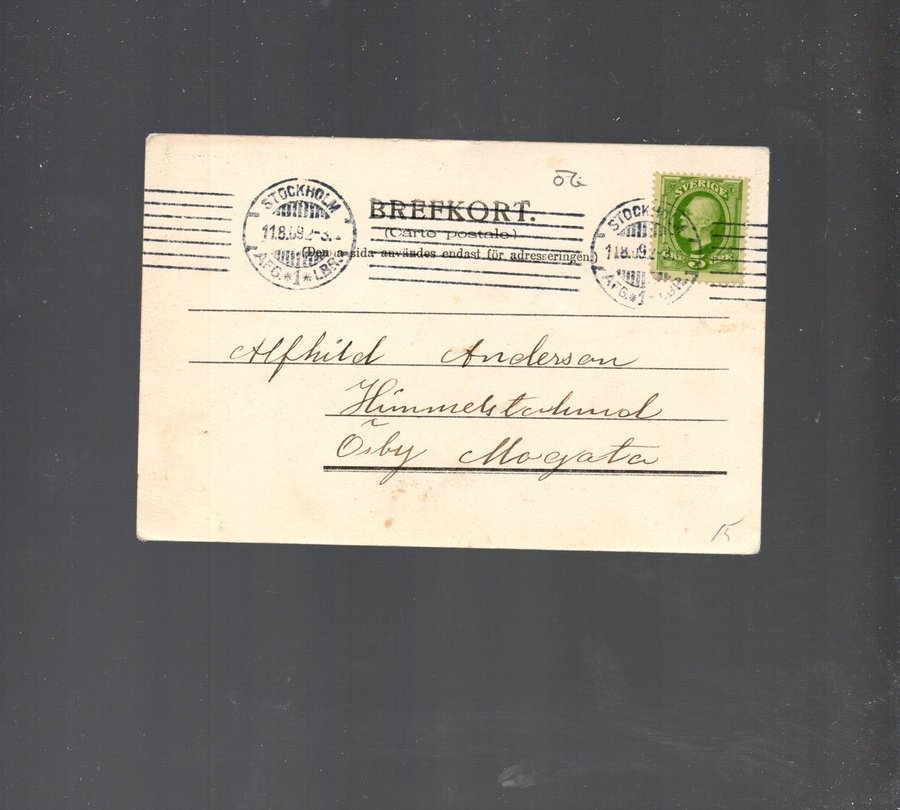 ÖG
SVERIGE
STOCKHOLM
11.8.09.2-3.
AFG.*1*LBR.
BREFKORT.
(Carte postale.)
(Denna sida användes endast för adresseringen.)
STOCKHOLM
11.8.09.2-3.
AFG.*1*LBR.
5
Alfhild Anderson
Himmelstalund
Örby Mogata
15